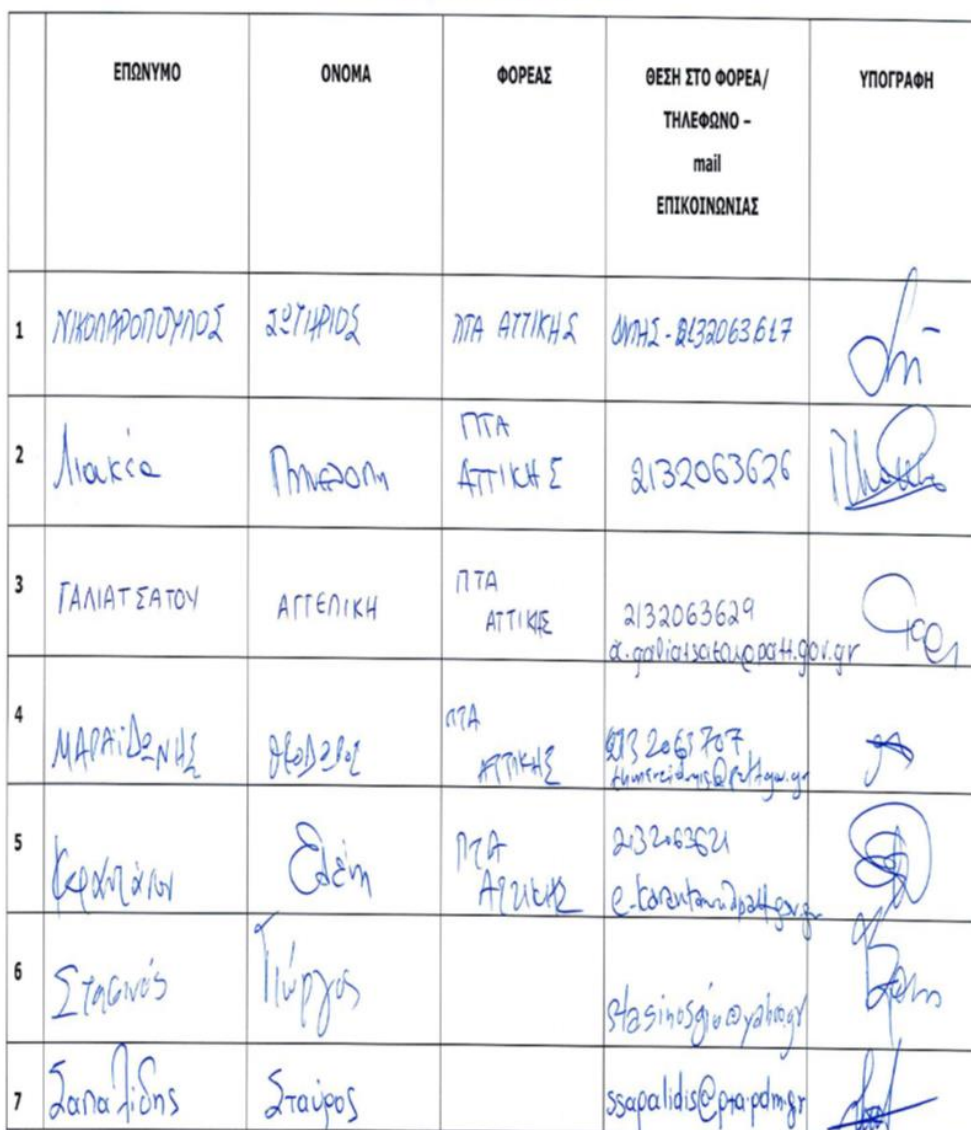 ΕΠΩΝΥΜΟ ΟΝΟΜΑ ΦΟΡΕΑΣ ΘΕΣΗ ΣΤΟ ΦΟΡΕΑ/ ΥΠΟΓΡΑΦΗ
ΤΗΛΕΦΩΝΟ –
mail
ΕΠΙΚΟΙΝΩΝΙΑΣ
1 ΣΩΤΗΡΙΟΣ ΠΤΑ ΑΤΤΙΚΗΣ 2132063617
2 Λιακέα Πηνελόπη ΠΤΑ
ΑΤΤΙΚΗΣ 2132063626
3 ΓΑΛΙΑΤΣΑΤΟΥ ΑΓΓΕΛΙΚΗ ΠΤΑ
ΑΤΤΙΚΗΣ 2132063629
a.galiatsatou@patt.gov.gr
4 ΜΑΡΑΪΔΩΝΗΣ ΘΕΟΔΩΡΟΣ ΠΤΑ
ΑΤΤΙΚΗΣ 2132063707
5 Ελένη ΠΤΑ
ΑΤΤΙΚΗΣ 2132063621
6 Στασινός Γιώργος
stasinosgio@yahoo.gr
7 Σαπαλίδης Σταύρος ssapalidis@pta.pdm.gr